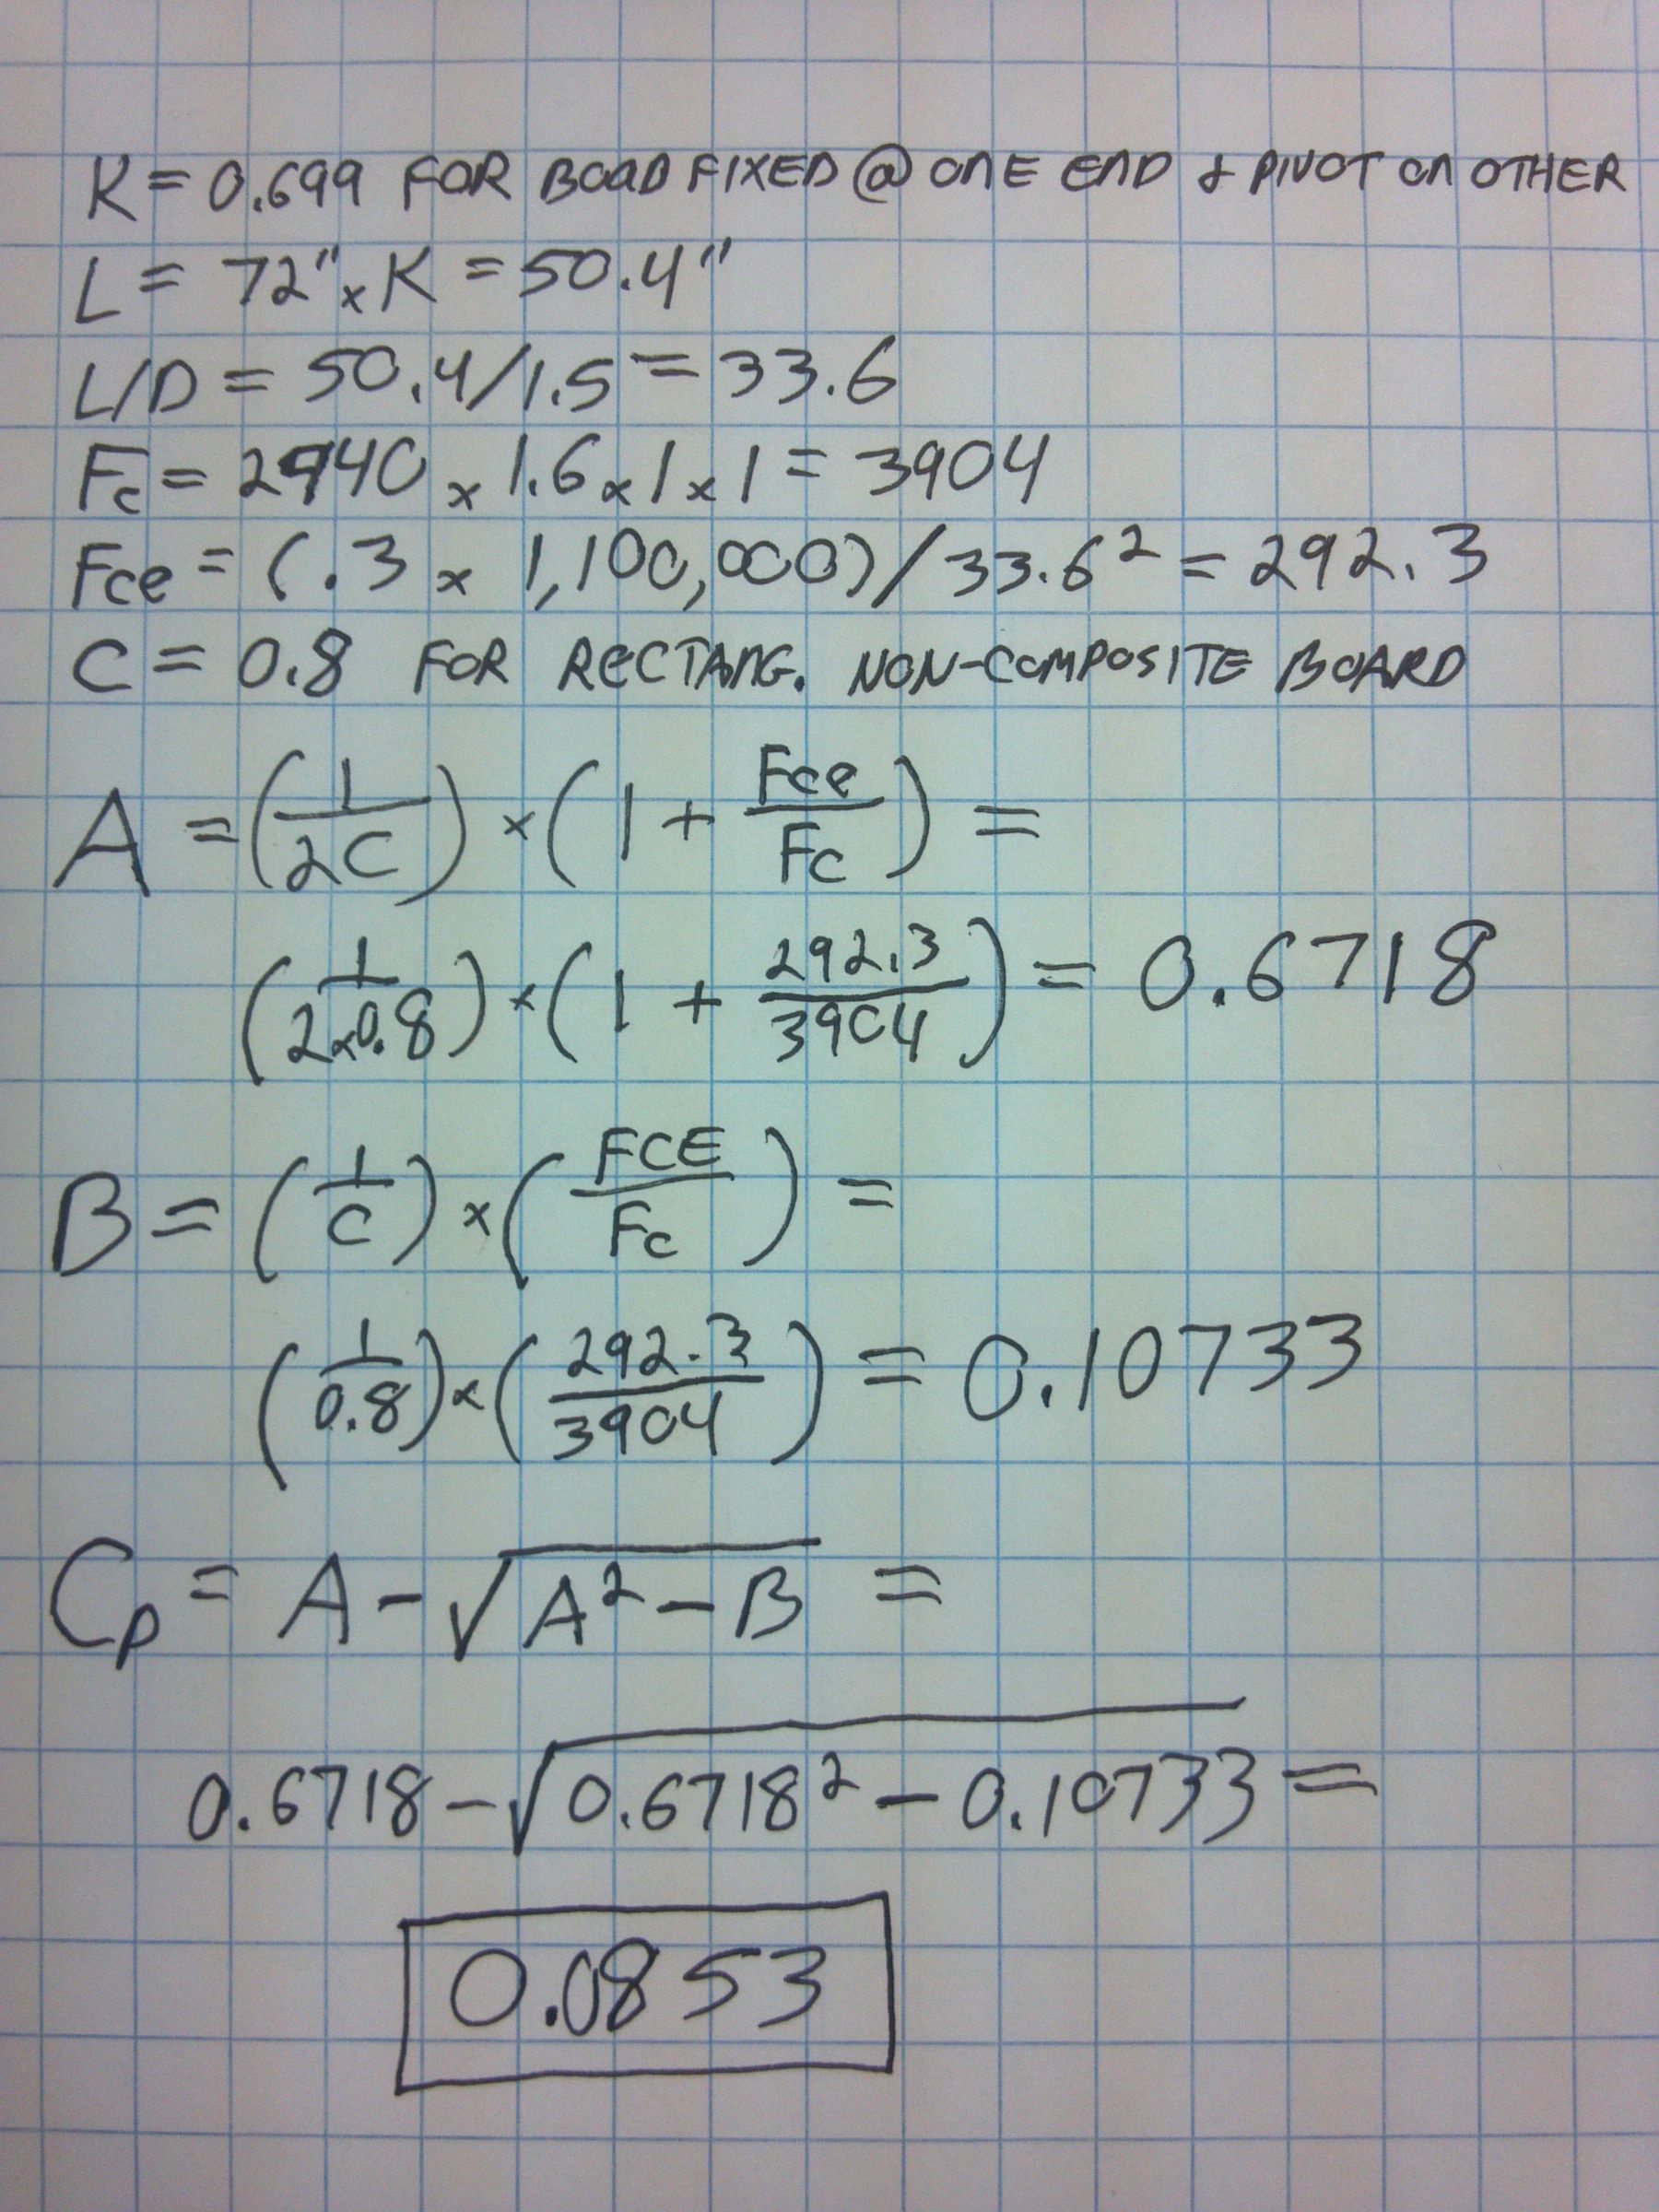 K = 0.699 FOR BOAD FIXED @ ONE END & PIVOT ON OTHER
L = 72" x K = 50.4"
L/D = 50.4/1.5 = 33.6
Fc = 2440 x 1.6 x 1 x 1 = 3904
Fce = (.3 x 1,100,000)/33.6² = 292.3
C = 0.8 FOR RECTANG. NON-COMPOSITE BOARD
A = (1/2C) x (1 + Fce/Fc) =
(1/2x0.8) x (1 + 292.3/3904) = 0.6718
B = (1/C) x (FCE/Fc) =
(1/0.8) x (292.3/3904) = 0.10733
Cp = A - √(A² - B) =
0.6718 - √(0.6718² - 0.10733) =
0.0853